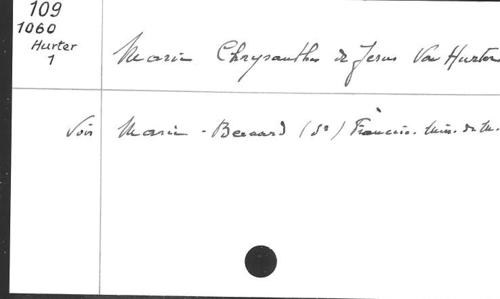 109
1060
Hurter
1
Marie Chrysanthe de Jesus Van Hurter
Voir Marie-Bernard (Sr) Francis. miss. de M.